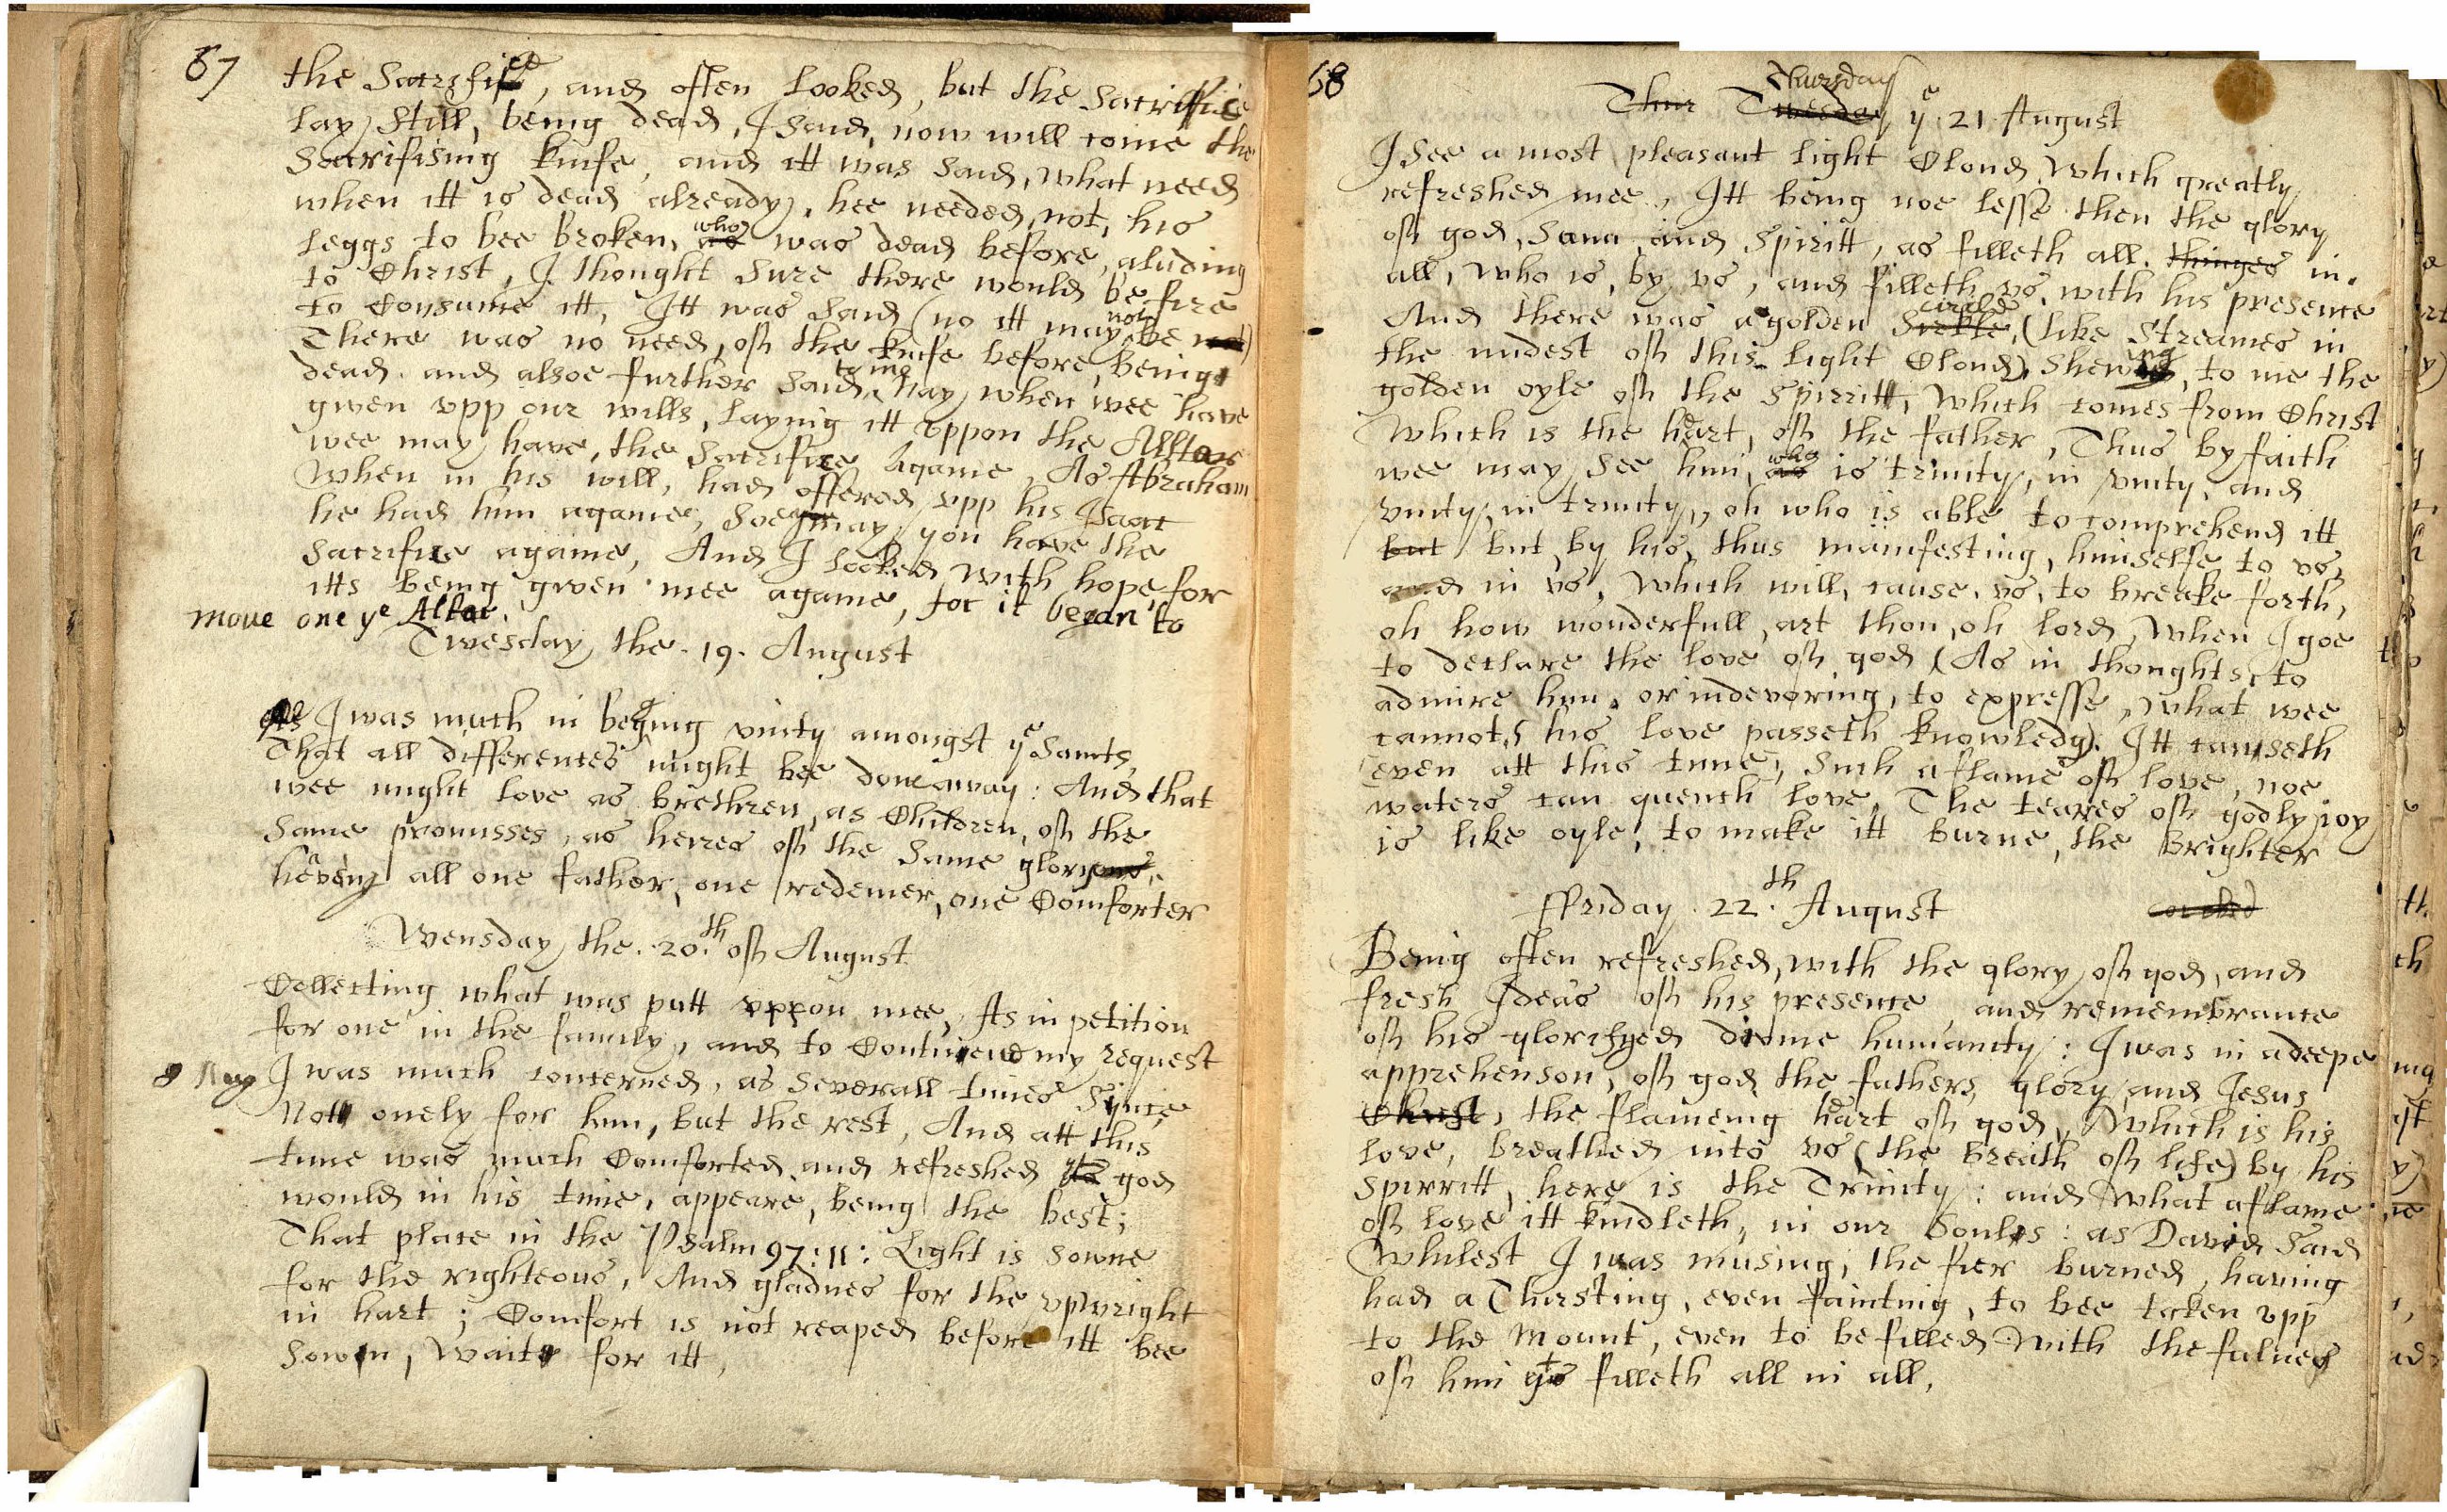 67
the Sacrifice, and often looked, but the Sacriffice
lay Still, being dead, I Said, now will come the
Sacrifising knife, and itt was Said, what need
when itt is dead already, hee needed, not, his
leggs to bee broken, as who was dead before, aluding
to Christ, I thought Sure there would be fire
to Consume itt, Itt was Said (no itt may not be not)
There was no need, off the knife before, being
dead. and alsoe further Said, to me Nay when wee have
given vpp our wills, laying itt vppon the Alltar
wee may have, the Sacrifice Againe, As Abraham
When in his will, had offered vpp his Isaac
he had him againe, Soe may you have the
Sacrifice againe, And I looked with hope for
itts being given mee againe, for it began to
move one ye Altar.
Twesday the .19. August
I was much in beging vnity amongst ye Saints,
That all differences might bee done away: And that
wee might love as brethren, as Children, off the
Same promisses, as heires off the Same glory
haveing all one father, one redemer, one Comforter
Wensday the .20.th off August
Collecting what was putt vppon mee, As in petition
for one in the family, and to Continend my request
I was much concerned, as Severall times Synce,
Nott onely for him, but the rest, And att this
time was much Comforted and refreshed god
would in his time, appeare, being the best;
That place in the Psalm 97:11: Light is Sowne
for the righteous, And gladnes for the vpwright
in hart; Comfort is not reaped before itt bee
Sowen, Waite for itt,
68
Thur Twesday Thursday ye .21. August
I See a most pleasant light Cloud, Which greatly
refreshed mee, Itt being noe lesse then the glory
off god, Sonn, and Spiritt, as filleth all. thinges in.
all, Who is, by vs, and filleth vs, with his presence
And there was a golden Sirkle, circle (like Streames in
the midest off this light Cloud), Shewing, to me the
golden oyle off the Spirritt, Which comes from Christ
Which is the heart, off the father, Thus by faith
wee may See him, as who is trinity, in vnity, and
vnity, in trinity, oh who is able to comprehend itt
but but by his, thus manifesting, himselfe to vs,
and in vs, Which will, cause, vs, to breake forth,
oh how wonderfull, art thou, oh lord, When I goe
to declare the love off god (As in thoughts, to
admire him, or indevoring, to expresse, What wee
cannot, his love passeth knowledg). Itt cawseth
even att this time, Such a flame off love, noe
waters can quench love, The teares off godly joy
is like oyle, to make itt burne, the Brighter
Ffriday .22.th August
Being often refreshed, with the glory off god, and
fresh Ideas off his presence, and remembrance
off his glorifyed divine humanity: I was in a deepe
apprehenson, off god the fathers, glory and Jesus
Christ, the flameing heart off god, Which is his
love, breathed into vs (the breath off life) by his
Spirritt, here is the Trinity: and What a flame
off love itt kindleth, in our Soules: as David Said
Whilest I was musing, the fier burned, having
had a Thirsting, even fainting, to bee taken vpp
to the Mount, even to be filled With the fulnes
off him yt filleth all in all,